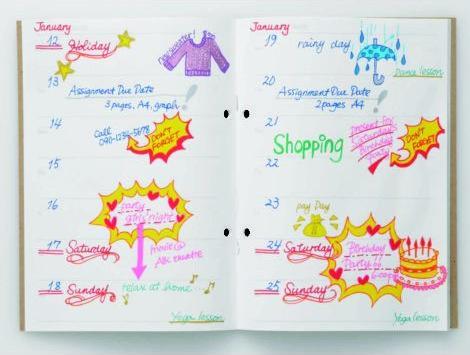 January
12 Holiday
13
Assignment Due Date
3 pages, A4, graph
14
Call
090-1234-5678
DON'T
FORGET
15
16
party
girls night
17 Saturday
movie@
ABC theatre
18 Sunday
relax at home...
Yoga lesson
January
19 rainy day
Dance lesson
20
Assignment Due Date
2 pages A4
21
Shopping
present for
Saturday
Birthday
Party
DON'T
FORGET
22
23
pay Day
24 Saturday
Birthday
Party
25 Sunday
Yoga lesson